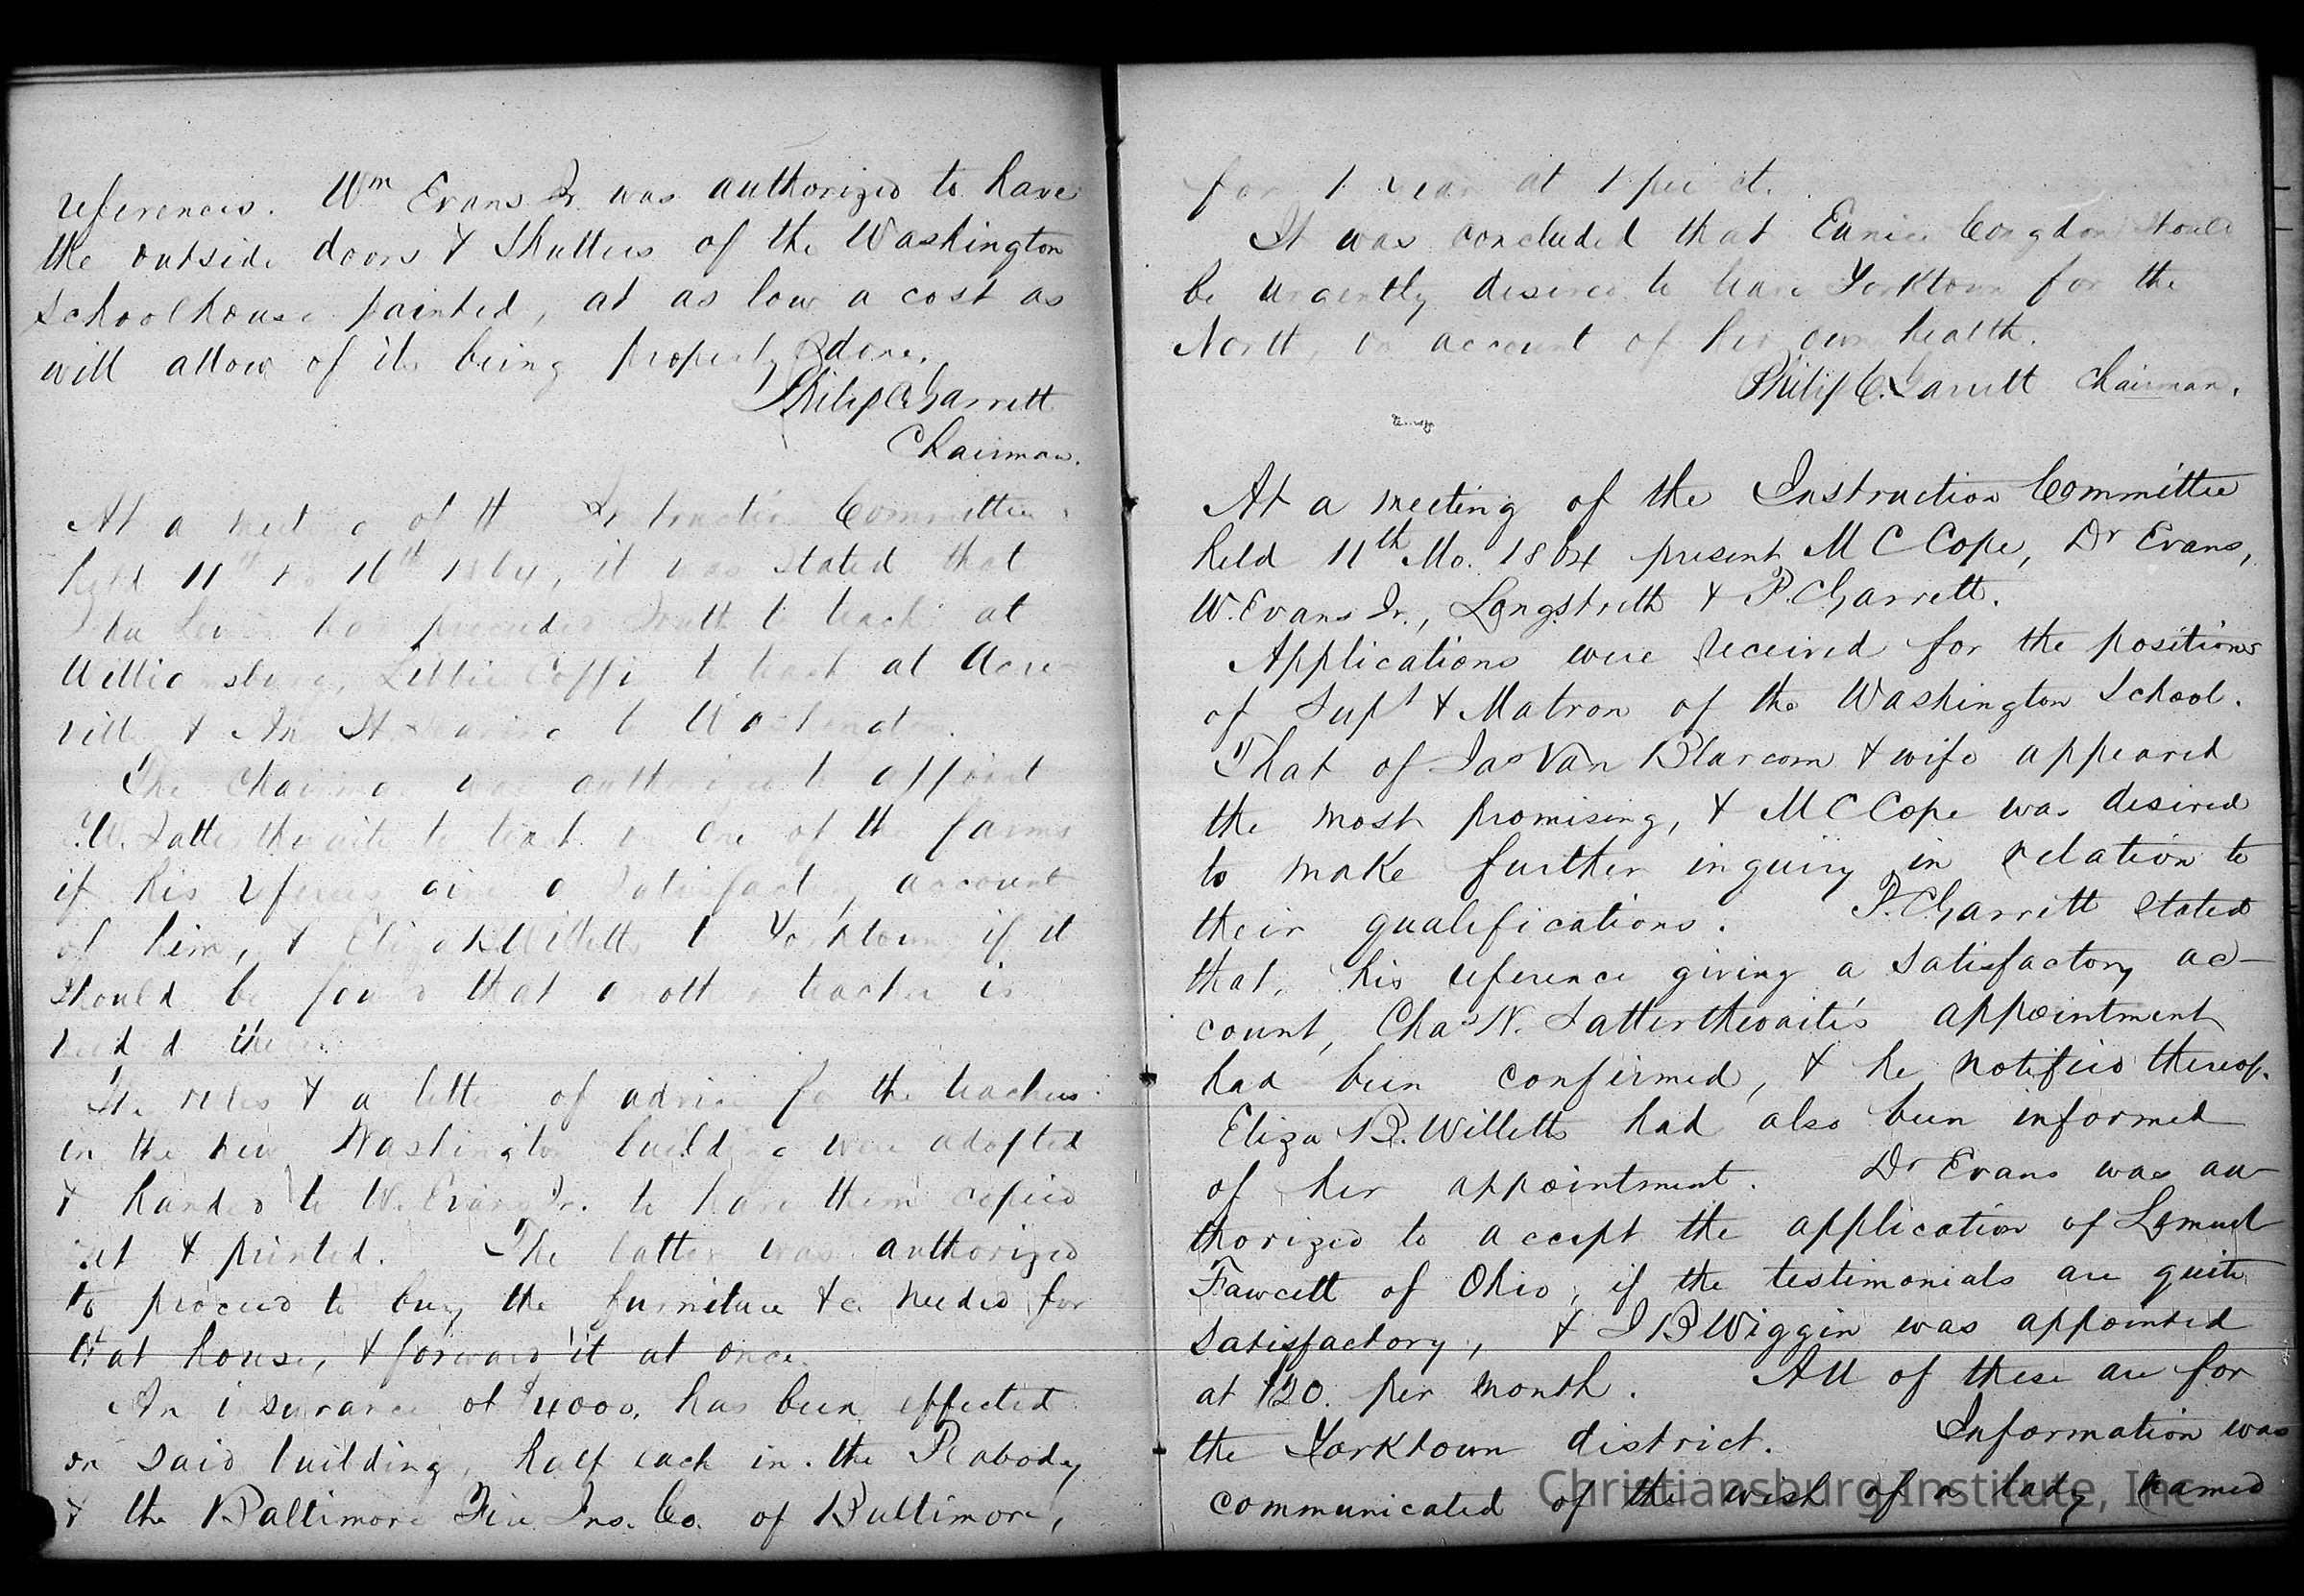 references. Wm Evans Jr. was authorized to have
the outside doors & Shutters of the Washington
Schoolhouse painted, at as low a cost as
will allow of its being properly done.
Philip C. Garrett
Chairman.
At a meeting of the Instruction Committee
held 11th Mo 16th 1864, it was stated that
has proceeded South to teach at
Williamsburg, Lizzie Coffin to teach at Acre
ville & Ann H. to Washington.
The Chairman was authorized to appoint
Satterthwaite to teach on one of the farms
if his references give a satisfactory account
of him, & Eliza Willetts to Yorktown if it
should be found that another teacher is
needed there.
The rules & a letter of advice for the teachers
in the new Washington building were adopted
& handed to W. Evans Jr. to have them copied
& printed. The latter was authorized
to proceed to buy the furniture &c needed for
that house, & forward it at once.
An insurance of $4000. has been effected
on said building, half each in the Peabody
& the Baltimore Fire Ins. Co. of Baltimore,
for 1 year at 1 per ct.
It was concluded that Eunice Congdon should
be urgently desired to leave Yorktown for the
North, on account of her own health.
Philip C. Garrett Chairman.
At a meeting of the Instruction Committee
held 11th Mo. 1864 present M C Cope, Dr Evans,
W. Evans Jr., Longstreth & P. C Garrett.
Applications were received for the positions
of Supt & Matron of the Washington School.
That of Jas Van Blarcom & wife appeared
the most promising, & M C Cope was desired
to make further inquiry in relation to
their qualifications. P. C Garrett stated
that, his reference giving a satisfactory ac-
count, Chas N. Satterthwaite's appointment
had been confirmed, & he notified thereof.
Eliza B. Willetts had also been informed
of her appointment. Dr Evans was au
thorized to accept the application of Lemuel
Fawcett of Ohio, if the testimonials are quite
satisfactory, & J B Wiggin was appointed
at $20. per month. All of these are for
the Yorktown district. Information was
communicated of the wish of a lady named
Christiansburg Institute, Inc